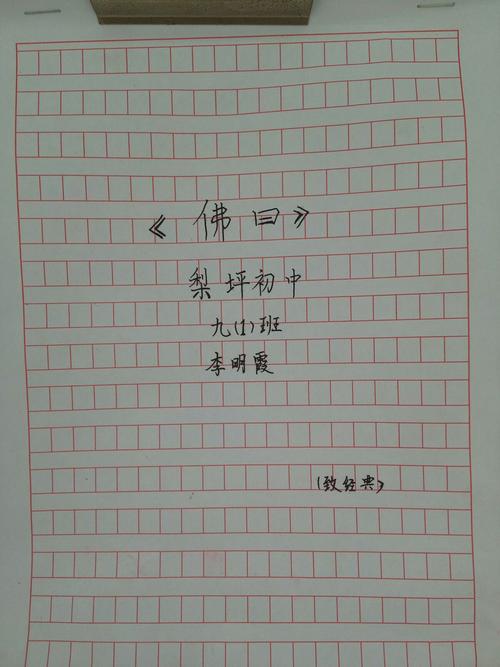 《佛曰》
梨坪初中
九(1)班
李明霞
(致经典)